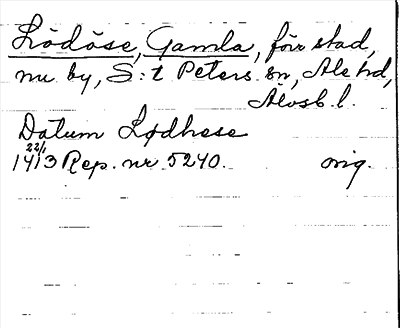 Lödöse, Gamla, förr stad,
nu by, S:t Peters sn, Ale hd,
Älvsb. l.
Datum Lødhese
22/1
1413 Rep. nr 5240. orig.